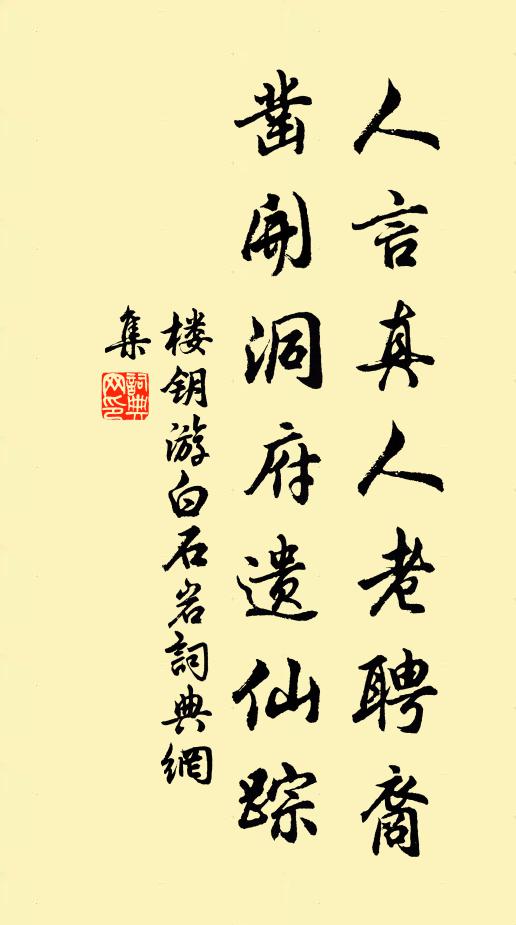 人言真人老聘裔
凿開洞府遗仙踪
楼钥游白石岩詞典網
集
詞典
网印